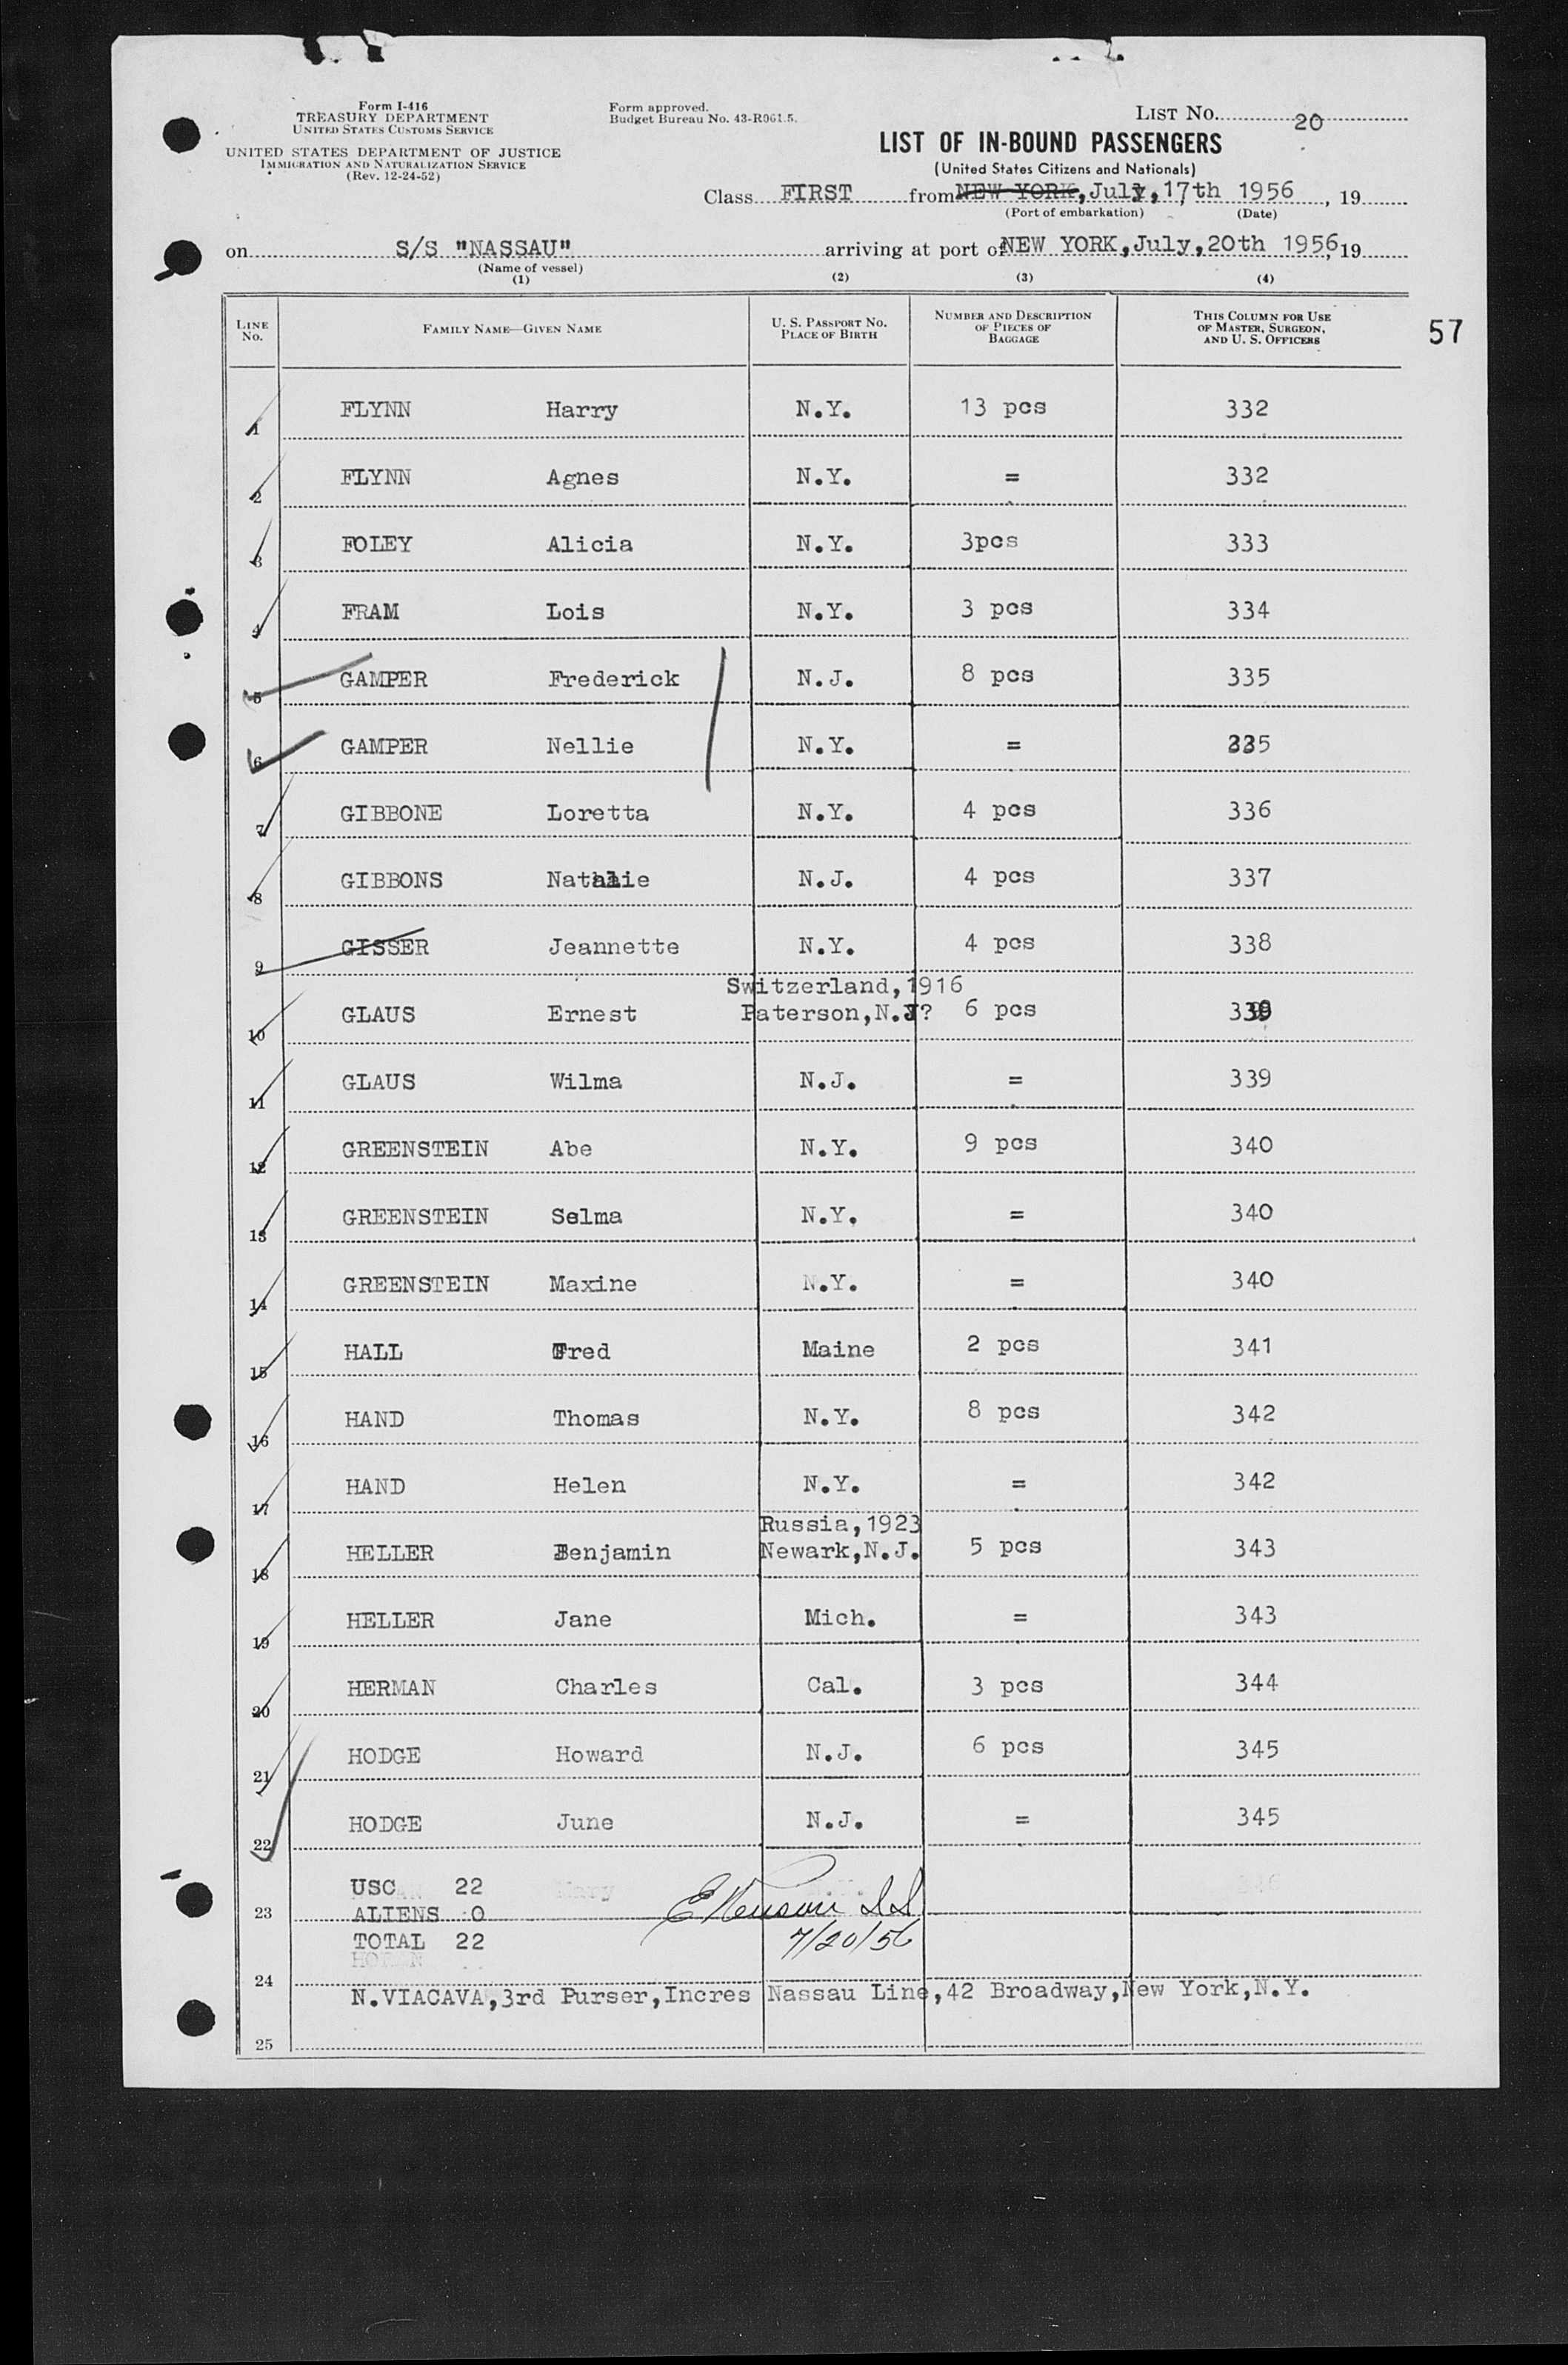 Form I-416
TREASURY DEPARTMENT
UNITED STATES CUSTOMS SERVICE
UNITED STATES DEPARTMENT OF JUSTICE
IMMIGRATION AND NATURALIZATION SERVICE
(Rev. 12-24-52)
Form approved.
Budget Bureau No. 43-R061.5.
LIST NO. 20
LIST OF IN-BOUND PASSENGERS
(United States Citizens and Nationals)
Class FIRST from NEW YORK, July, 17th 1956, 19
(Port of embarkation) (Date)
on S/S "NASSAU" arriving at port of NEW YORK, July, 20th 1956, 19
(Name of vessel)
(1) (2) (3) (4)
LINE NO. FAMILY NAME—GIVEN NAME U. S. PASSPORT NO. PLACE OF BIRTH NUMBER AND DESCRIPTION OF PIECES OF BAGGAGE THIS COLUMN FOR USE OF MASTER, SURGEON, AND U. S. OFFICERS
57
1 FLYNN Harry N.Y. 13 pcs 332
2 FLYNN Agnes N.Y. = 332
3 FOLEY Alicia N.Y. 3pcs 333
4 FRAM Lois N.Y. 3 pcs 334
5 GAMPER Frederick N.J. 8 pcs 335
6 GAMPER Nellie N.Y. = 335
7 GIBBONE Loretta N.Y. 4 pcs 336
8 GIBBONS Nathalie N.J. 4 pcs 337
9 GISSER Jeannette N.Y. 4 pcs 338
Switzerland,1916
10 GLAUS Ernest Paterson,N.J? 6 pcs 339
11 GLAUS Wilma N.J. = 339
12 GREENSTEIN Abe N.Y. 9 pcs 340
13 GREENSTEIN Selma N.Y. = 340
14 GREENSTEIN Maxine N.Y. = 340
15 HALL Fred Maine 2 pcs 341
16 HAND Thomas N.Y. 8 pcs 342
17 HAND Helen N.Y. = 342
Russia,1923
18 HELLER Benjamin Newark,N.J. 5 pcs 343
19 HELLER Jane Mich. = 343
20 HERMAN Charles Cal. 3 pcs 344
21 HODGE Howard N.J. 6 pcs 345
22 HODGE June N.J. = 345
USC 22
23 ALIENS 0
TOTAL 22 7/20/56
24
N.VIACAVA,3rd Purser,Incres Nassau Line,42 Broadway,New York,N.Y.
25